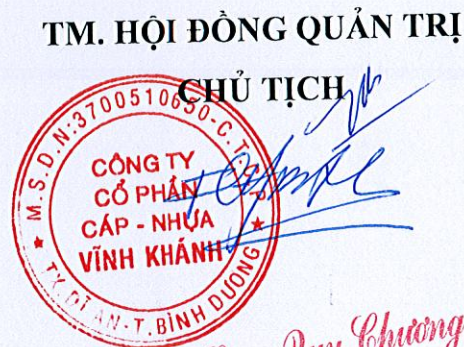 TM. HỘI ĐỒNG QUẢN TRỊ
CHỦ TỊCH
M.S.D.N:3700510650-C.T.
CÔNG TY
CỔ PHẦN
CÁP - NHỰA
VĨNH KHÁNH
TX.DĨ AN-T.BÌNH DƯƠNG
Chương